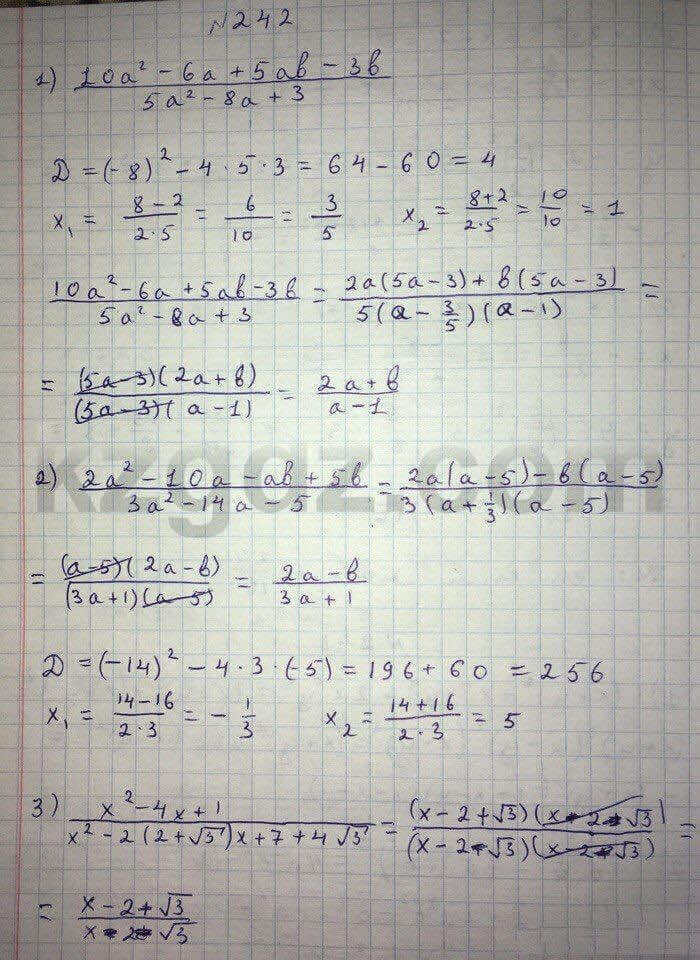 №242
1) (10a² - 6a + 5ab - 3b)/(5a² - 8a + 3)
D = (-8)² - 4·5·3 = 64 - 60 = 4
x₁ = (8-2)/(2·5) = 6/10 = 3/5   x₂ = (8+2)/(2·5) = 10/10 = 1
(10a² - 6a + 5ab - 3b)/(5a² - 8a + 3) = (2a(5a-3) + b(5a-3))/(5(a - 3/5)(a-1)) =
= ((5a-3)(2a+b))/((5a-3)(a-1)) = (2a+b)/(a-1)
2) (2a² - 10a - ab + 5b)/(3a² - 14a - 5) = (2a(a-5) - b(a-5))/(3(a + 1/3)(a-5))
= ((a-5)(2a-b))/((3a+1)(a-5)) = (2a-b)/(3a+1)
D = (-14)² - 4·3·(-5) = 196 + 60 = 256
x₁ = (14-16)/(2·3) = -1/3   x₂ = (14+16)/(2·3) = 5
3) (x² - 4x + 1)/(x² - 2(2+√3)x + 7 + 4√3) = ((x-2+√3)(x-2-√3))/((x-2-√3)(x-2-√3)) =
= (x-2+√3)/(x-2-√3)